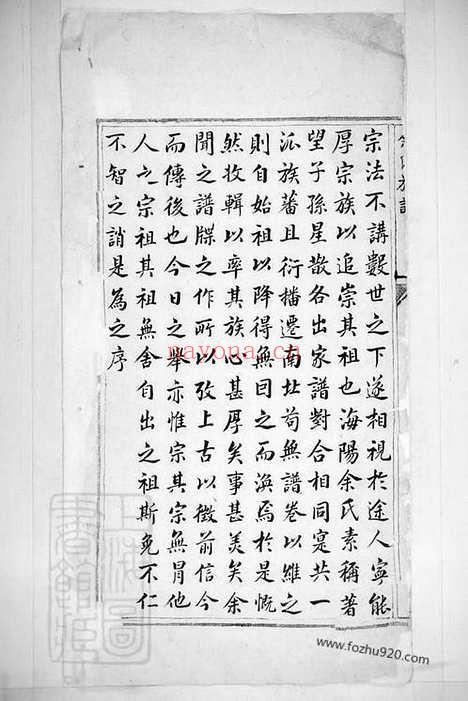 宗法不講數世之下遂相視於途人寧能
厚宗族以追崇其祖也海陽余氏素稱著
望子孫星散各出家譜對合相同寔共一
派族蕃且衍播遷南北苟無譜卷以維之
則自始祖以降得無因之而渙焉於是慨
然收輯以率其族心甚厚矣事甚美矣余
聞之譜牒之作所以攷上古以徵前信今
而傳後也今日之舉亦惟宗其宗無冐他
人之宗祖其祖無舍自出之祖斯免不仁
不智之誚是為之序
nayona.cn
www.fozhu920.com